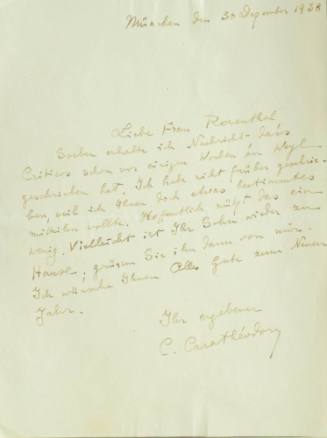 München den 30 Dezember 1938
Liebe Frau Rosenthal
Soeben erhalte ich Nachricht dass
schon vor einigen Wochen an Weyl
geschrieben hat. Ich habe nicht früher geschrie-
ben, weil ich Ihnen doch etwas bestimmtes
mitteilen wollte. Hoffentlich nützt das ein
wenig. Vielleicht ist Ihr Sohn wieder zu
Hause; grüssen Sie ihn dann von mir.
Ich wünsche Ihnen Alles Gute zum Neuen
Jahr.
Ihr ergebener
C. Carathéodory